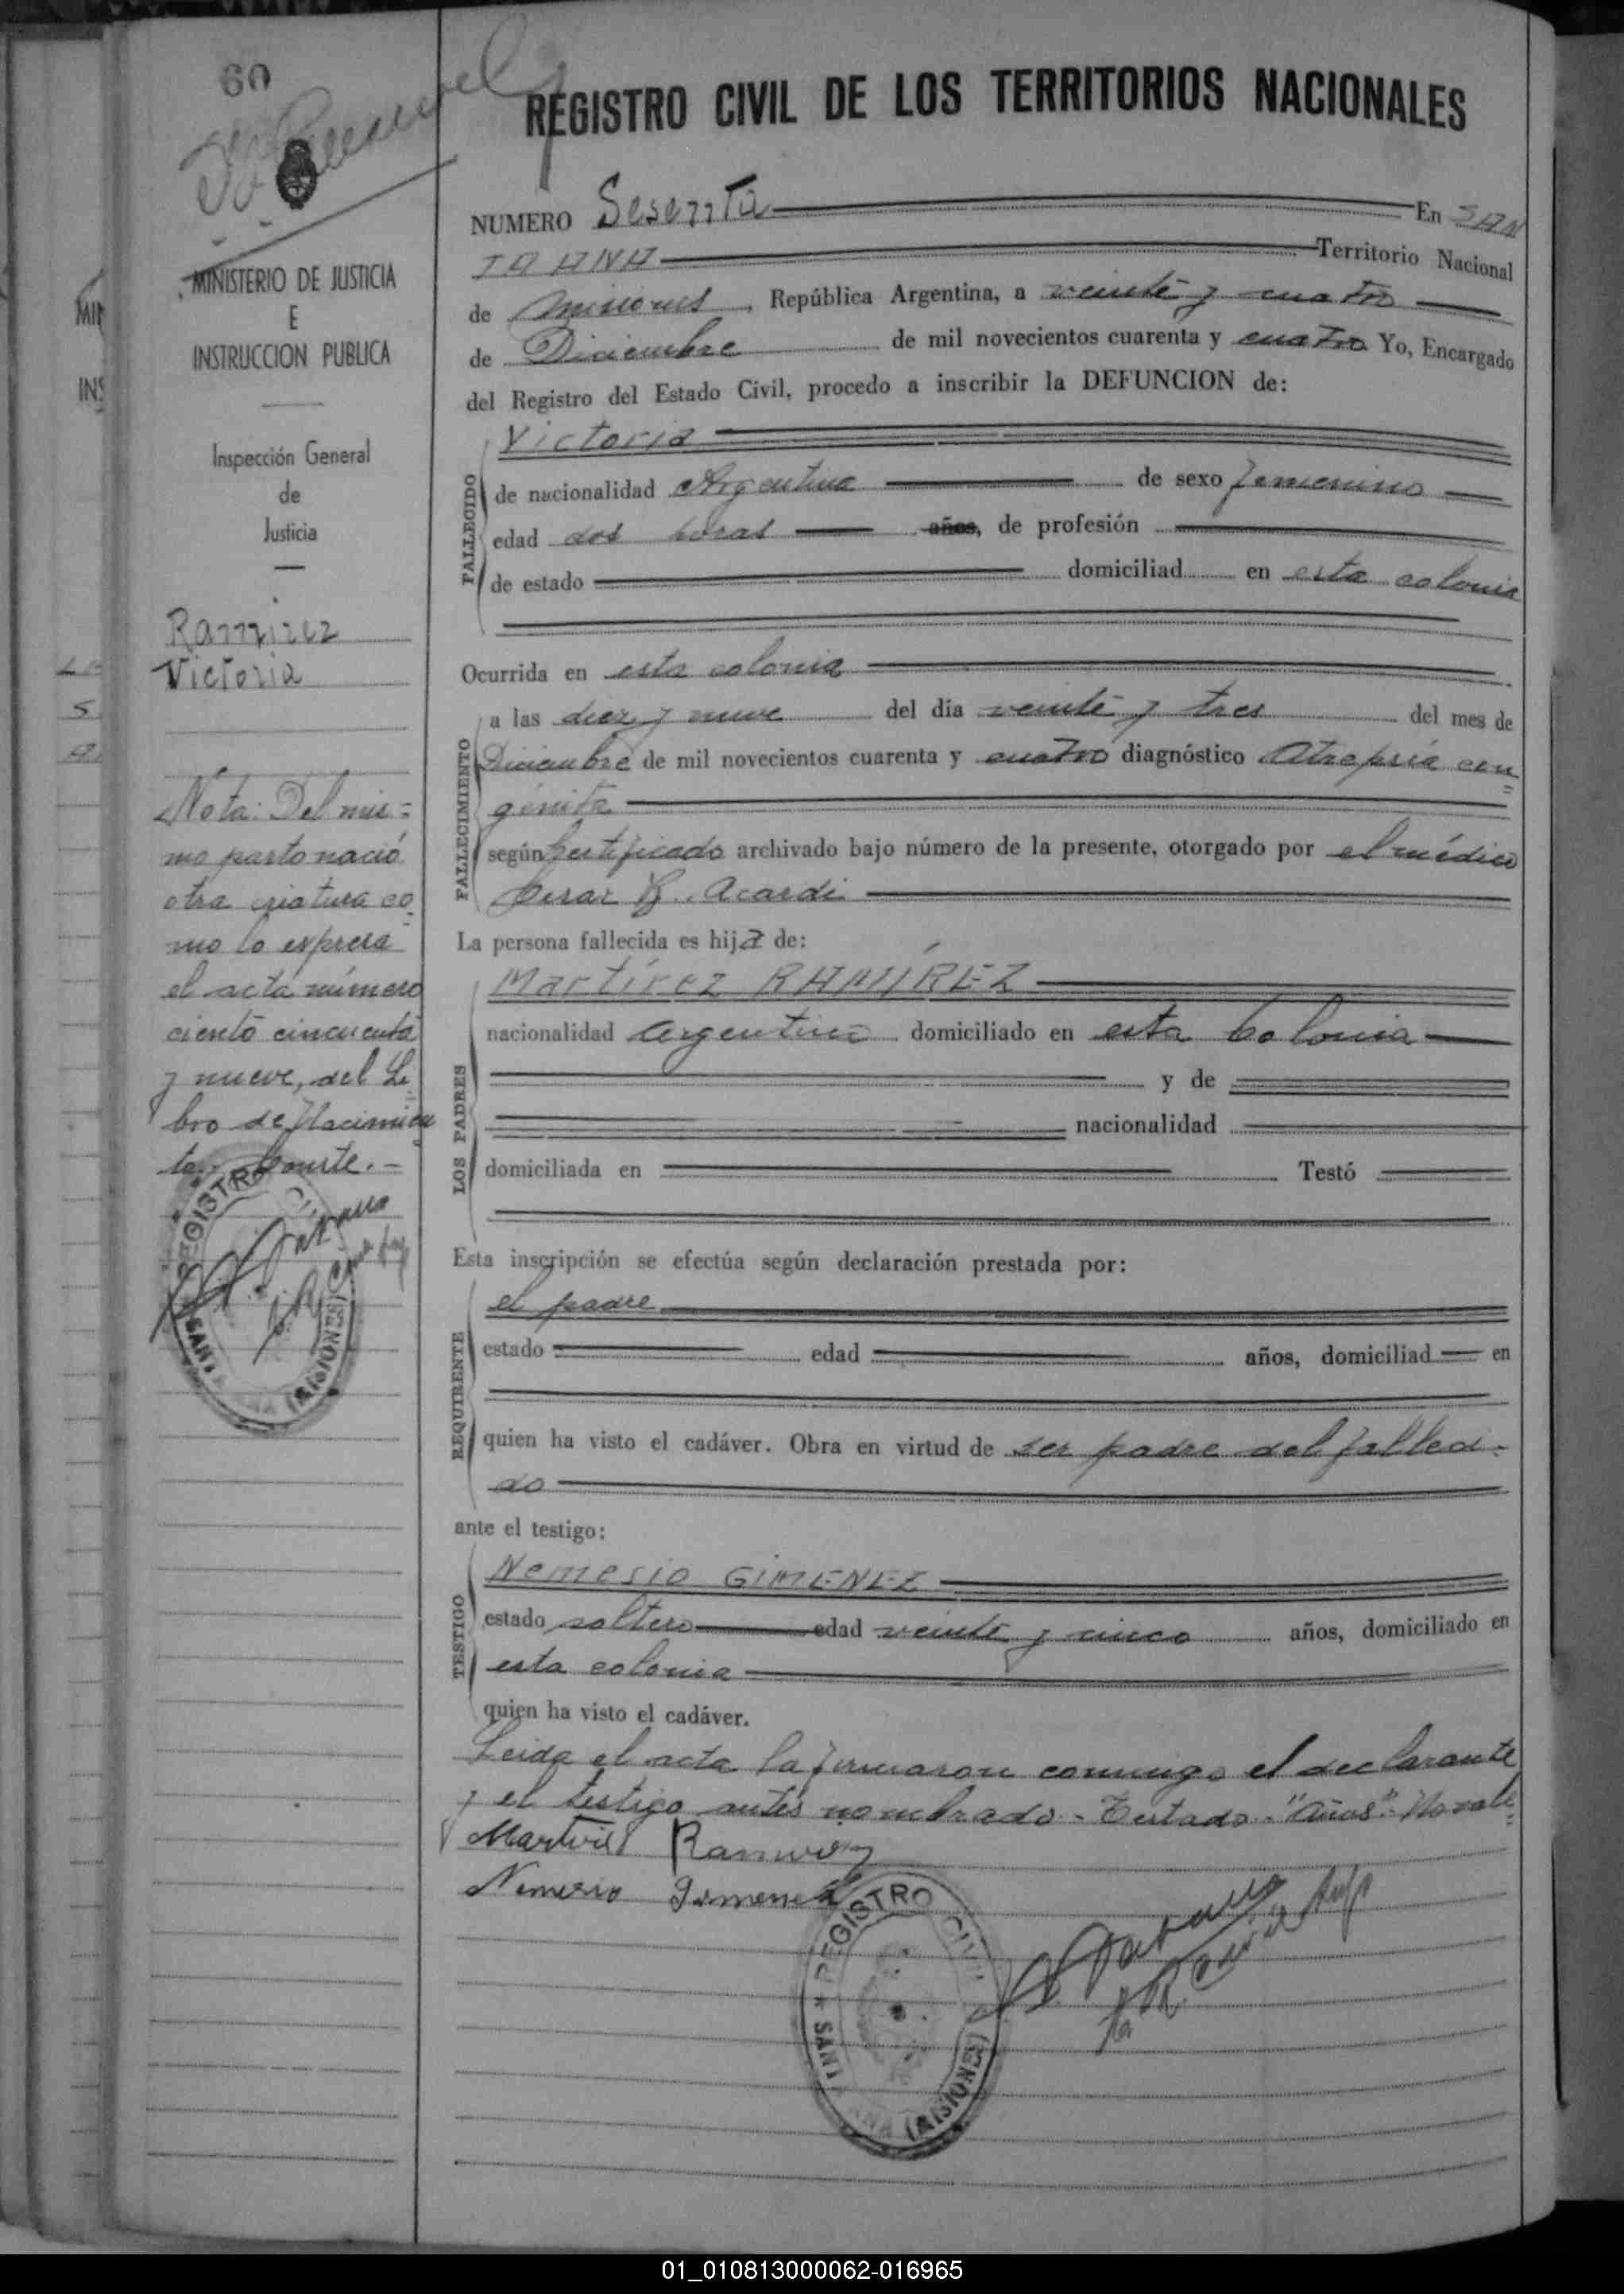 60
REGISTRO CIVIL DE LOS TERRITORIOS NACIONALES
NUMERO Sesenta En SAN
TA ANA Territorio Nacional
de Misiones, República Argentina, a veinte y cuatro
de Diciembre de mil novecientos cuarenta y cuatro Yo, Encargado
del Registro del Estado Civil, procedo a inscribir la DEFUNCION de:
MINISTERIO DE JUSTICIA
E
INSTRUCCION PUBLICA
Inspección General
de
Justicia
Ramirez
Victoria
Nota: Del mis=
mo parto nació
otra criatura co
mo lo expresa
el acta número
ciento cincuenta
y nueve, del Li
bro de Nacimien
to. Conste.-
REGISTRO CIVIL SANTA ANA (MISIONES)
FALLECIDO
Victoria
de nacionalidad Argentina de sexo femenino
edad dos horas años, de profesión
de estado domiciliad en esta colonia
Ocurrida en esta colonia
FALLECIMIENTO
a las diez y nueve del día veinte y tres del mes de
Diciembre de mil novecientos cuarenta y cuatro diagnóstico Atrepsia con
génita
según Certificado archivado bajo número de la presente, otorgado por el médico
Cesar B. Acardi
La persona fallecida es hija de:
LOS PADRES
Martírez RAMÍREZ
nacionalidad argentino domiciliado en esta Colonia
y de
nacionalidad
domiciliada en Testó
Esta inscripción se efectúa según declaración prestada por:
REQUIRENTE
el padre
estado edad años, domiciliad en
quien ha visto el cadáver. Obra en virtud de ser padre del falleci-
do
ante el testigo:
TESTIGO
Nemesio GIMENEZ
estado soltero edad veinte y cinco años, domiciliado en
esta colonia
quien ha visto el cadáver.
Leida el acta la firmaron conmigo el declarante
y el testigo antes nombrado - Testado - "años" - No vale
Martires Ramirez
Nemesio Gimenez
REGISTRO CIVIL SANTA ANA (MISIONES)
01_010813000062-016965